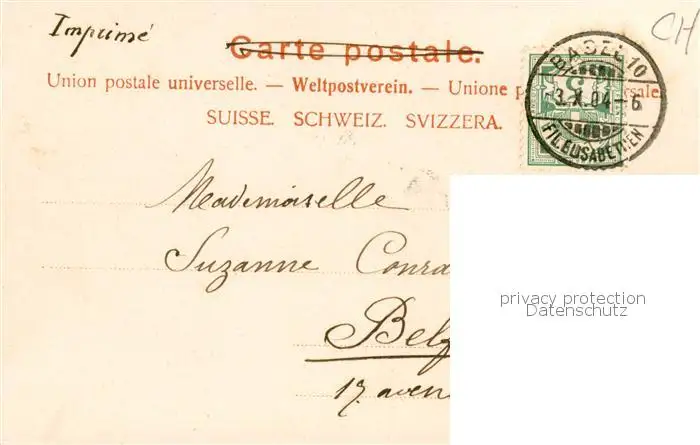 Imprimé
CH
Carte postale.
Union postale universelle. — Weltpostverein. — Unione p
SUISSE. SCHWEIZ. SVIZZERA.
BASEL 10
3.X.04–6
FIL.ELISABETHEN
5
Mademoiselle
Suzanne Conra
Belf
17, aven
privacy protection
Datenschutz